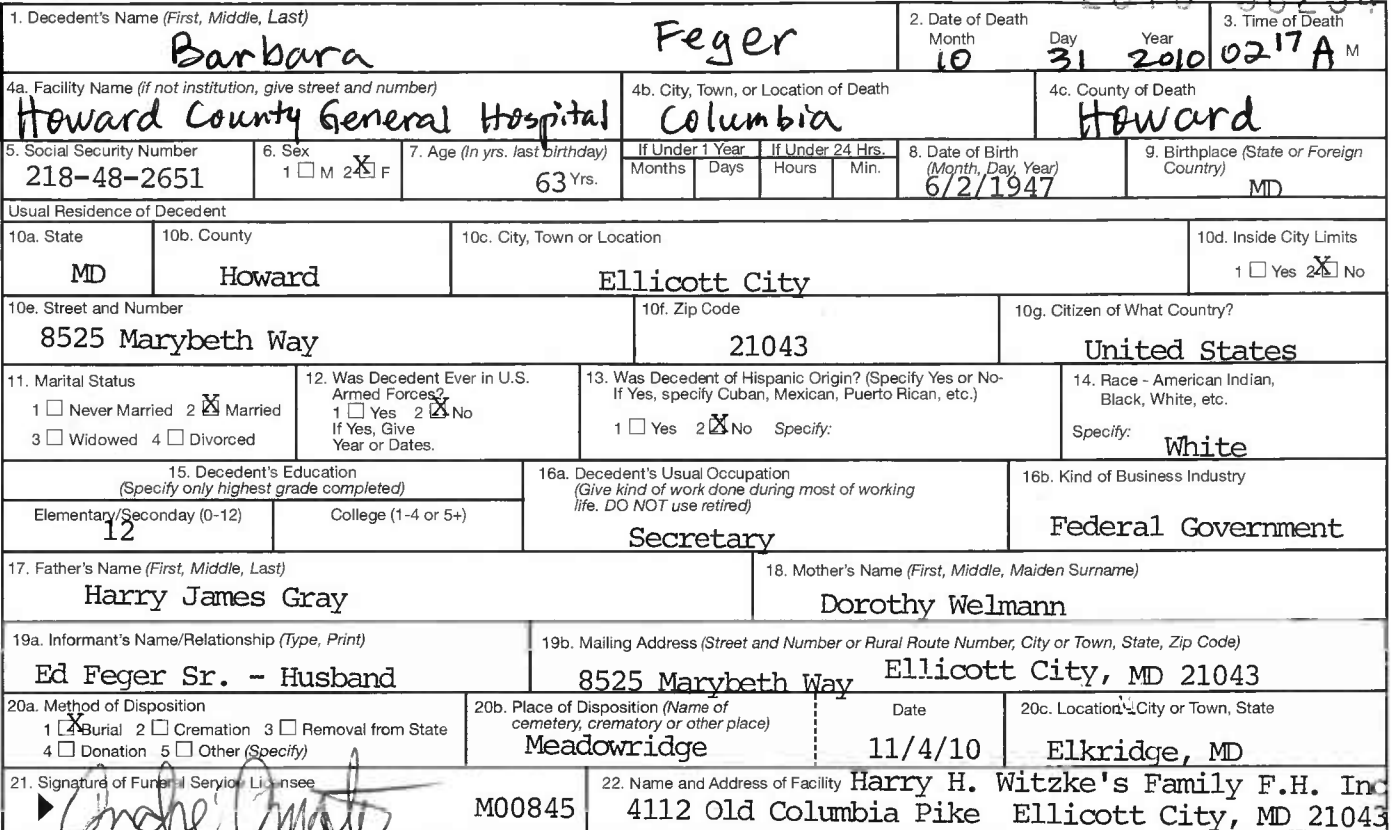 1. Decedent's Name (First, Middle, Last)
Barbara Feger
2. Date of Death
Month Day Year
10 31 2010
3. Time of Death
0217 A M
4a. Facility Name (if not institution, give street and number)
Howard County General Hospital
4b. City, Town, or Location of Death
Columbia
4c. County of Death
Howard
5. Social Security Number
218-48-2651
6. Sex
1 ☐ M 2 ☒ F
7. Age (In yrs. last birthday)
63 Yrs.
If Under 1 Year
Months Days
If Under 24 Hrs.
Hours Min.
8. Date of Birth
(Month, Day, Year)
6/2/1947
9. Birthplace (State or Foreign
Country)
MD
Usual Residence of Decedent
10a. State
MD
10b. County
Howard
10c. City, Town or Location
Ellicott City
10d. Inside City Limits
1 ☐ Yes 2 ☒ No
10e. Street and Number
8525 Marybeth Way
10f. Zip Code
21043
10g. Citizen of What Country?
United States
11. Marital Status
1 ☐ Never Married 2 ☒ Married
3 ☐ Widowed 4 ☐ Divorced
12. Was Decedent Ever in U.S.
Armed Forces?
1 ☐ Yes 2 ☒ No
If Yes, Give
Year or Dates.
13. Was Decedent of Hispanic Origin? (Specify Yes or No-
If Yes, specify Cuban, Mexican, Puerto Rican, etc.)
1 ☐ Yes 2 ☒ No Specify:
14. Race - American Indian,
Black, White, etc.
Specify: White
15. Decedent's Education
(Specify only highest grade completed)
Elementary/Seconday (0-12)
12
College (1-4 or 5+)
16a. Decedent's Usual Occupation
(Give kind of work done during most of working
life. DO NOT use retired)
Secretary
16b. Kind of Business Industry
Federal Government
17. Father's Name (First, Middle, Last)
Harry James Gray
18. Mother's Name (First, Middle, Maiden Surname)
Dorothy Welmann
19a. Informant's Name/Relationship (Type, Print)
Ed Feger Sr. - Husband
19b. Mailing Address (Street and Number or Rural Route Number, City or Town, State, Zip Code)
8525 Marybeth Way Ellicott City, MD 21043
20a. Method of Disposition
1 ☒ Burial 2 ☐ Cremation 3 ☐ Removal from State
4 ☐ Donation 5 ☐ Other (Specify)
20b. Place of Disposition (Name of
cemetery, crematory or other place)
Meadowridge
Date
11/4/10
20c. Location - City or Town, State
Elkridge, MD
21. Signature of Funeral Service Licensee
M00845
22. Name and Address of Facility Harry H. Witzke's Family F.H. Inc
4112 Old Columbia Pike Ellicott City, MD 21043